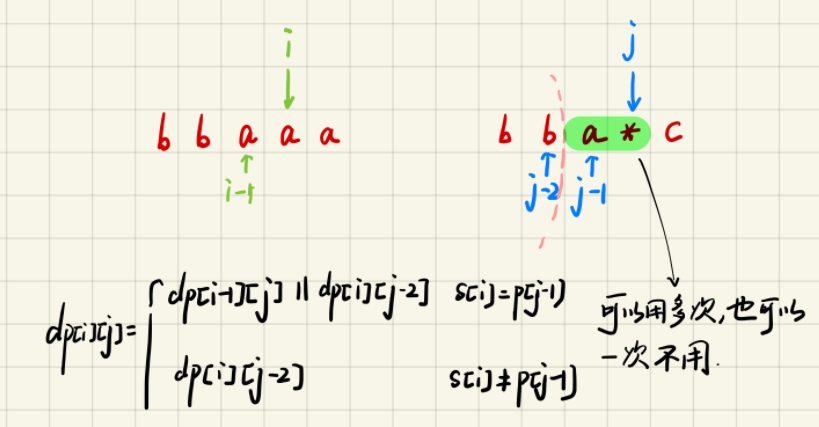 i
j
b b a a a
b b a * c
i-1
j-2 j-1
dp[i][j]=
dp[i-1][j] || dp[i][j-2] s[i]=p[j-1]
dp[i][j-2] s[i]≠p[j-1]
可以用多次,也可以
一次不用.